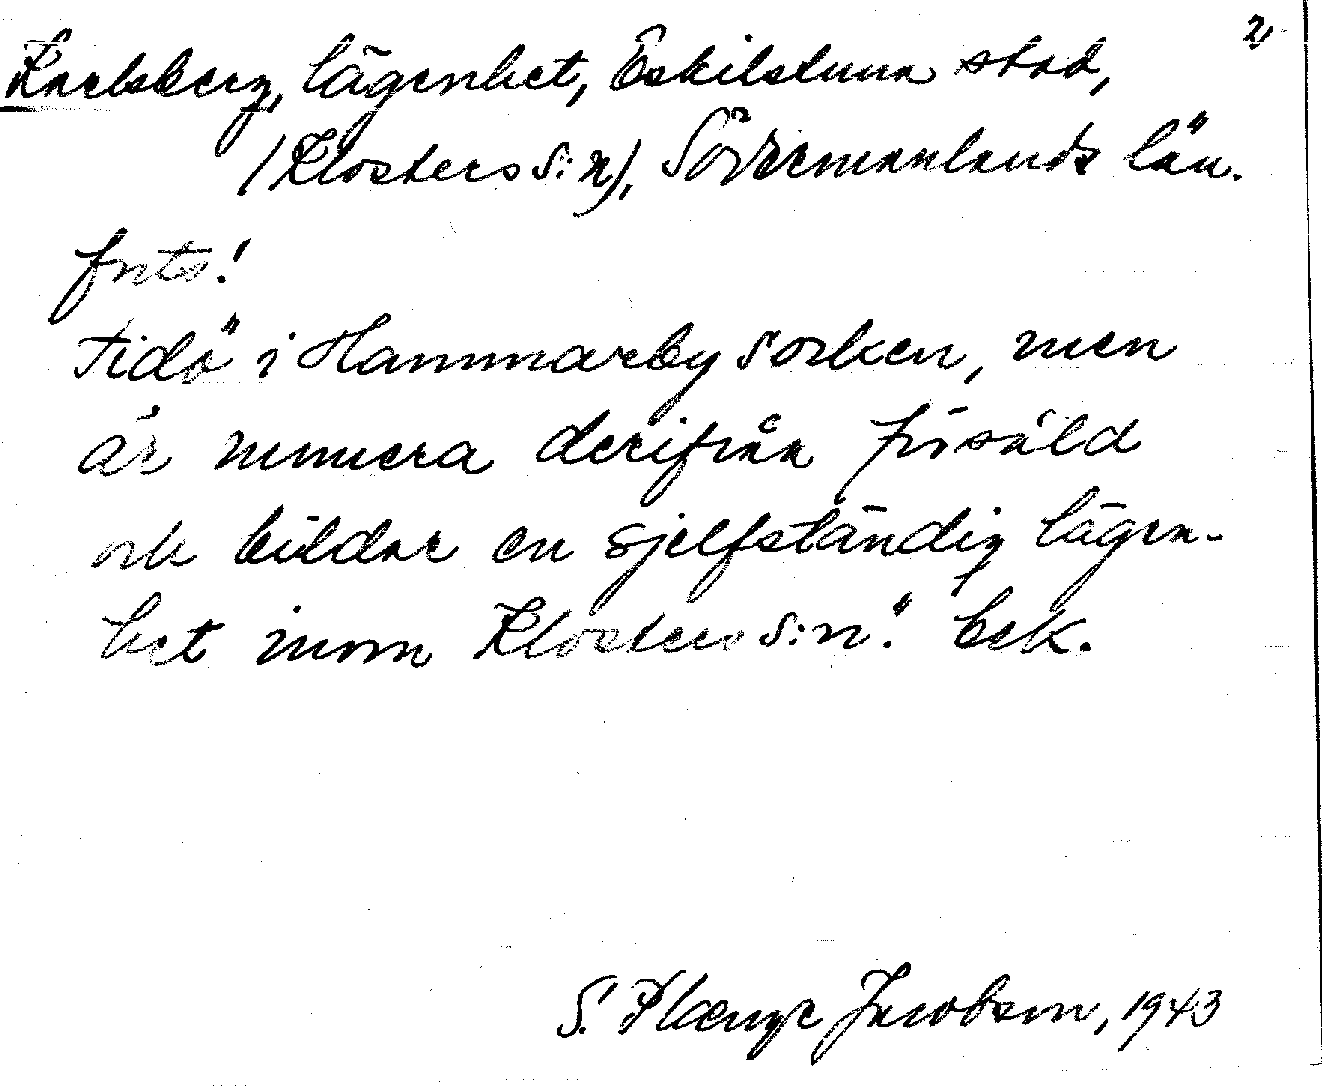 2,
Karlsberg, lägenhet, Eskilstuna stad,
(Klosters S:n), Södermanlands län.
forts!
Tidö" i Hammarby socken, men
är numera derifrån försåld
och bildar en sjelfständig lägen-
het inom Klosters s:n." Esk.
S. Plænge Jacobson, 1943